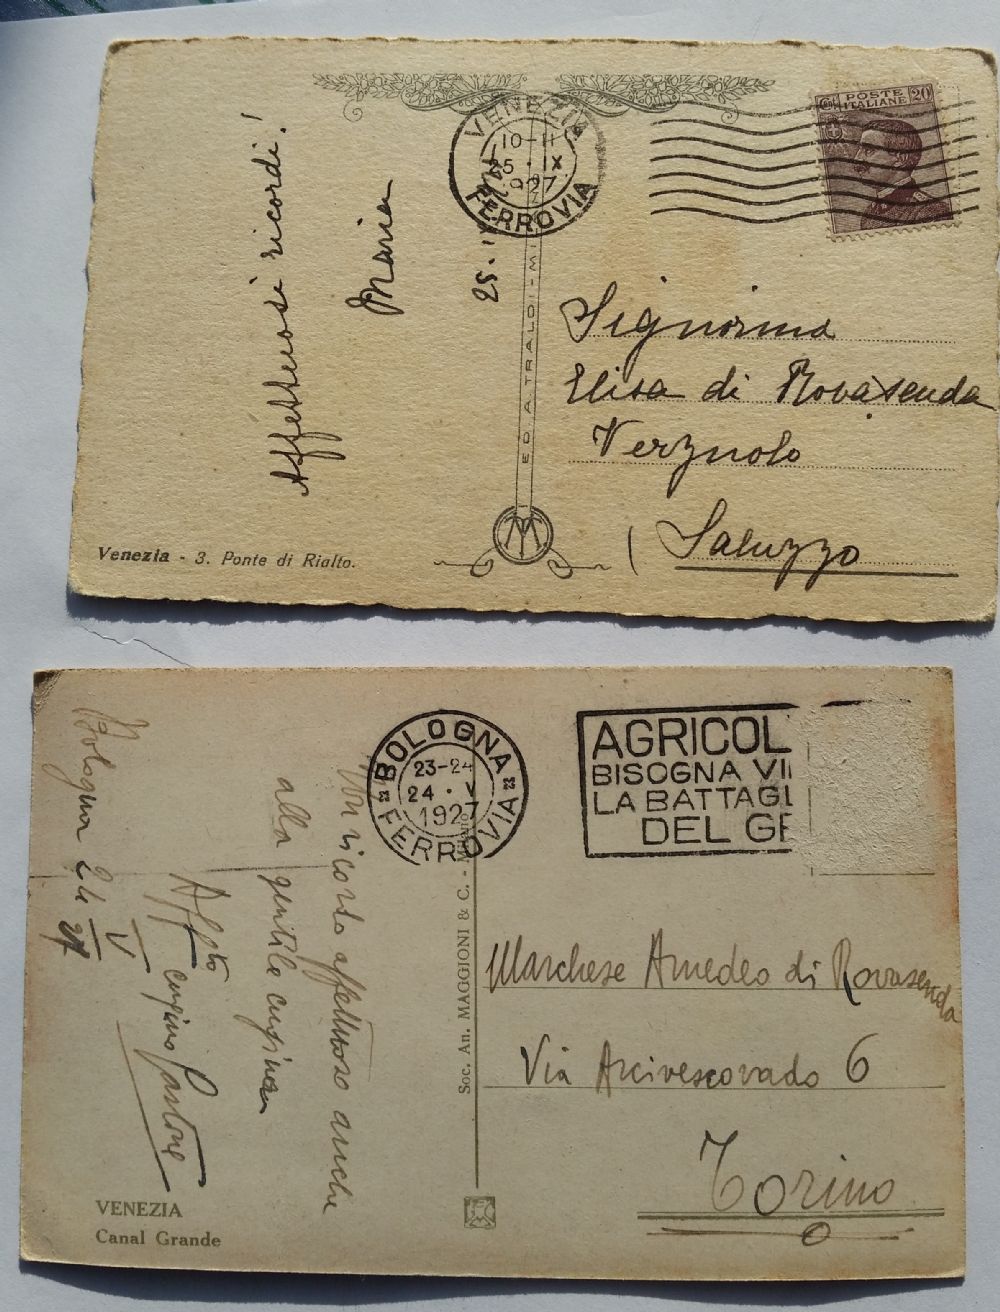 VENEZIA
10-11
25 · IX
1927
FERROVIA
POSTE
ITALIANE
20
Affettuosi ricordi!
Maria
25.
ED. A. TRALDI - MI
Signorina
Elisa di Rovasenda
Verzuolo
( Saluzzo
Venezia - 3. Ponte di Rialto.
BOLOGNA
23-24
24 · V
1927
FERROVIA
AGRICOL
BISOGNA VI
LA BATTAGL
DEL G
Bologna 24
V
27
Un ricordo affettuoso anche
alla gentile cugina
Affto
cugino Pastone
Soc. An. MAGGIONI & C. -
Marchese Amedeo di Rovasenda
Via Arcivescovado 6
Torino
VENEZIA
Canal Grande